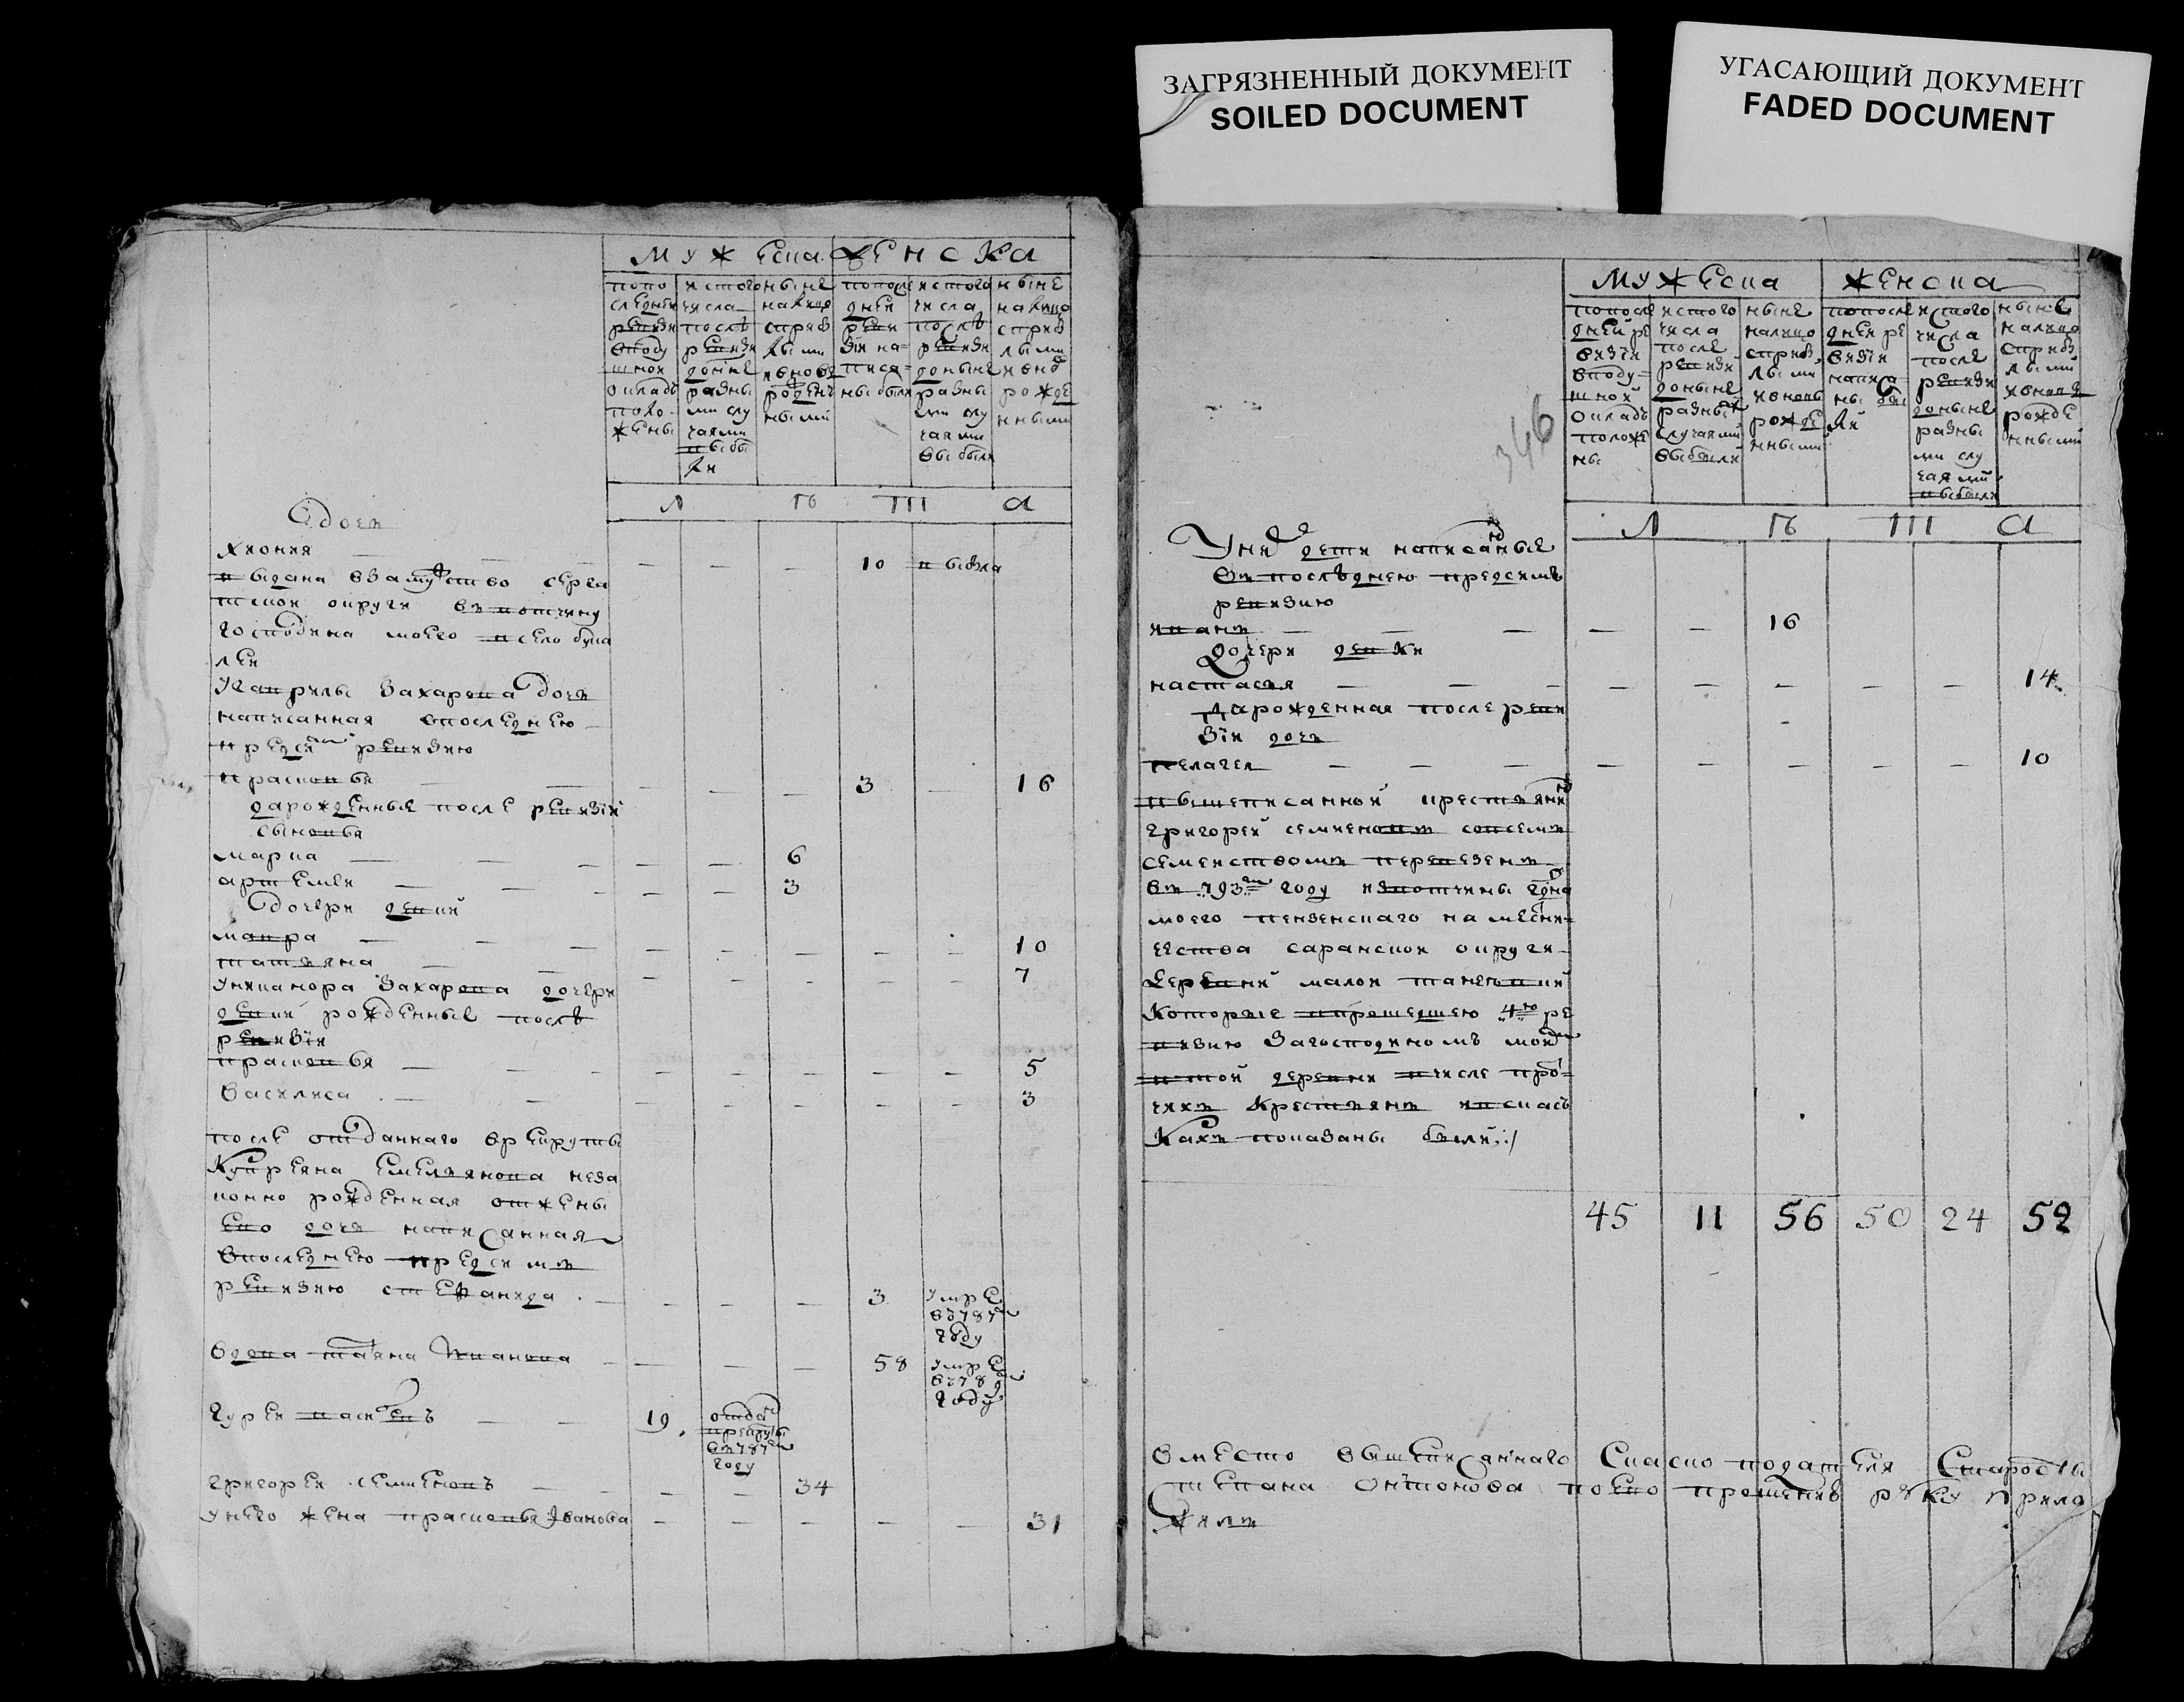 ЗАГРЯЗНЕННЫЙ ДОКУМЕНТ
SOILED DOCUMENT
УГАСАЮЩИЙ ДОКУМЕНТ
FADED DOCUMENT
Мужеска Женска
попо следней ревизи вподу шной окладъ поло жены
истого числа послѣ ревизи доныне разны ми слу чаями выбы ли
ныне налицо сприб лыми ивнове рожден ными
попосле дней реви зiи на= писа= ны были
истого числа послѣ ревизи доныне разны ми слу чаями выбыли
ныне налицо сприб лыми ивно рожде нными
Л П Т А
Дочь
Хиония — — — — — 10 выбыла
выдана взамужство серга
тской округи въ вотчину
господина моего в село бука
леи
Угаврилы Захарова дочь
написанная впоследнею
предсимъ ревизию
прасковья — — — — — 3 — 16
дарожденные после ревизiи
сыновья
марка — — — — — 6
артемеи — — — — — 3
Дочери девки
мавра — — — — — — — — 10
татьяна — — — — — — — — 7
Униканора Захарова дочери
девки рожденные послѣ
ревизiи
прасковья — — — — — — — — 5
василиса — — — — — — — 3
после отданнаго врекруты
Купреяна Емельянова неза
конно рожденная отжены
ево дочь написанная
впоследнею предсимъ
ревизию стефанида — — — — 3 умре
в787м
году
вдова татьяна Иванова — — — — 58 умре
в789м
году
гурей васильевъ — — 19 отда
врекруты
въ787м
году
григорей семеновъ — — — — 34
унего жена прасковья Иванова — — — — — 31
346
Мужеска Женска
попосле дней ре визiи вподу= шной окладъ положе ны
истого числа после ревизи доныне разны случаями выбыли
ныне налицо сприб лыми ивновь рожде нными
попосле дней ре визiи написа ны бы ли
истого числа после ревизи доныне разны ми слу чаями выбыли
ныне налицо сприб лыми ивнов рожде нными
Л П Т А
Унихъ дети написаные
въ последнею предсимъ
ревизию
иванъ — — — — — 16
Дочери девки
настасья — — — — — — — — 14
Дарожденная после реви
зiи дочь
пелагея — — — — — — — — 10
вышеписанной крестьянинъ
григорей семеновъ совсемъ
семействомъ перевезенъ
въ 793м году извотчины гдна
моего пензенскаго намесни=
чества саранской округи
деревни малой танеевки
Которые впрошедшею 4ю ре
визию Загосподиномъ моимъ
втой деревни вчисле про=
чихъ Крестьянъ ивсказ
Кахъ показаны были :/
45 11 56 50 24 52
Вместо вышеписаннаго Скаско подателя Старосты
степана онтонова поево прошению рѣку прило
жилъ